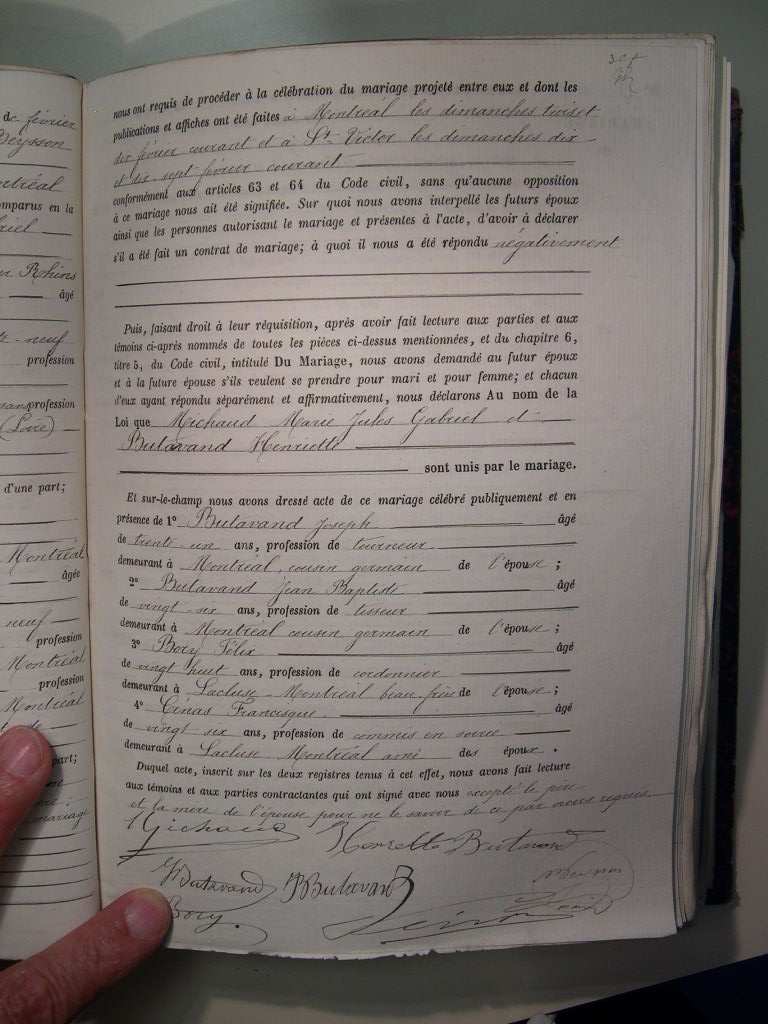 de février
Beysson
Montréal
comparus en la
Gabriel
Rhins
âgé
neuf
profession
profession
(Loire)
d'une part;
Montréal
âgée
neuf
profession
Montréal
profession
Montréal
part;
mariage
nous ont requis de procéder à la célébration du mariage projeté entre eux et dont les
publications et affiches ont été faites à Montréal les dimanches trois et
dix février courant et à St Victor les dimanches dix
et dix sept février courant
conformément aux articles 63 et 64 du Code civil, sans qu'aucune opposition
à ce mariage nous ait été signifiée. Sur quoi nous avons interpellé les futurs époux
ainsi que les personnes autorisant le mariage et présentes à l'acte, d'avoir à déclarer
s'il a été fait un contrat de mariage; à quoi il nous a été répondu négativement
Puis, faisant droit à leur réquisition, après avoir fait lecture aux parties et aux
témoins ci-après nommés de toutes les pièces ci-dessus mentionnées, et du chapitre 6,
titre 5, du Code civil, intitulé Du Mariage, nous avons demandé au futur époux
et à la future épouse s'ils veulent se prendre pour mari et pour femme; et chacun
d'eux ayant répondu séparément et affirmativement, nous déclarons Au nom de la
Loi que Michaud Marie Jules Gabriel et
Butavand Henriette
sont unis par le mariage.
Et sur-le-champ nous avons dressé acte de ce mariage célébré publiquement et en
présence de 1° Butavand Joseph âgé
de trente un ans, profession de tourneur
demeurant à Montréal, cousin germain de l'épouse;
2° Butavand Jean Baptiste âgé
de vingt six ans, profession de tisseur
demeurant à Montréal cousin germain de l'épouse;
3° Bory Félix âgé
de vingt huit ans, profession de cordonnier
demeurant à Lacluse-Montréal beau frère de l'épouse;
4° Cinas Francisque âgé
de vingt six ans, profession de commis en soierie
demeurant à Lacluse Montréal ami des époux.
Duquel acte, inscrit sur les deux registres tenus à cet effet, nous avons fait lecture
aux témoins et aux parties contractantes qui ont signé avec nous excepté le père
et la mère de l'épouse pour ne le savoir de ce par nous requis
Michaud Henriette Butavand
J Butavand JB Butavand
Bory.